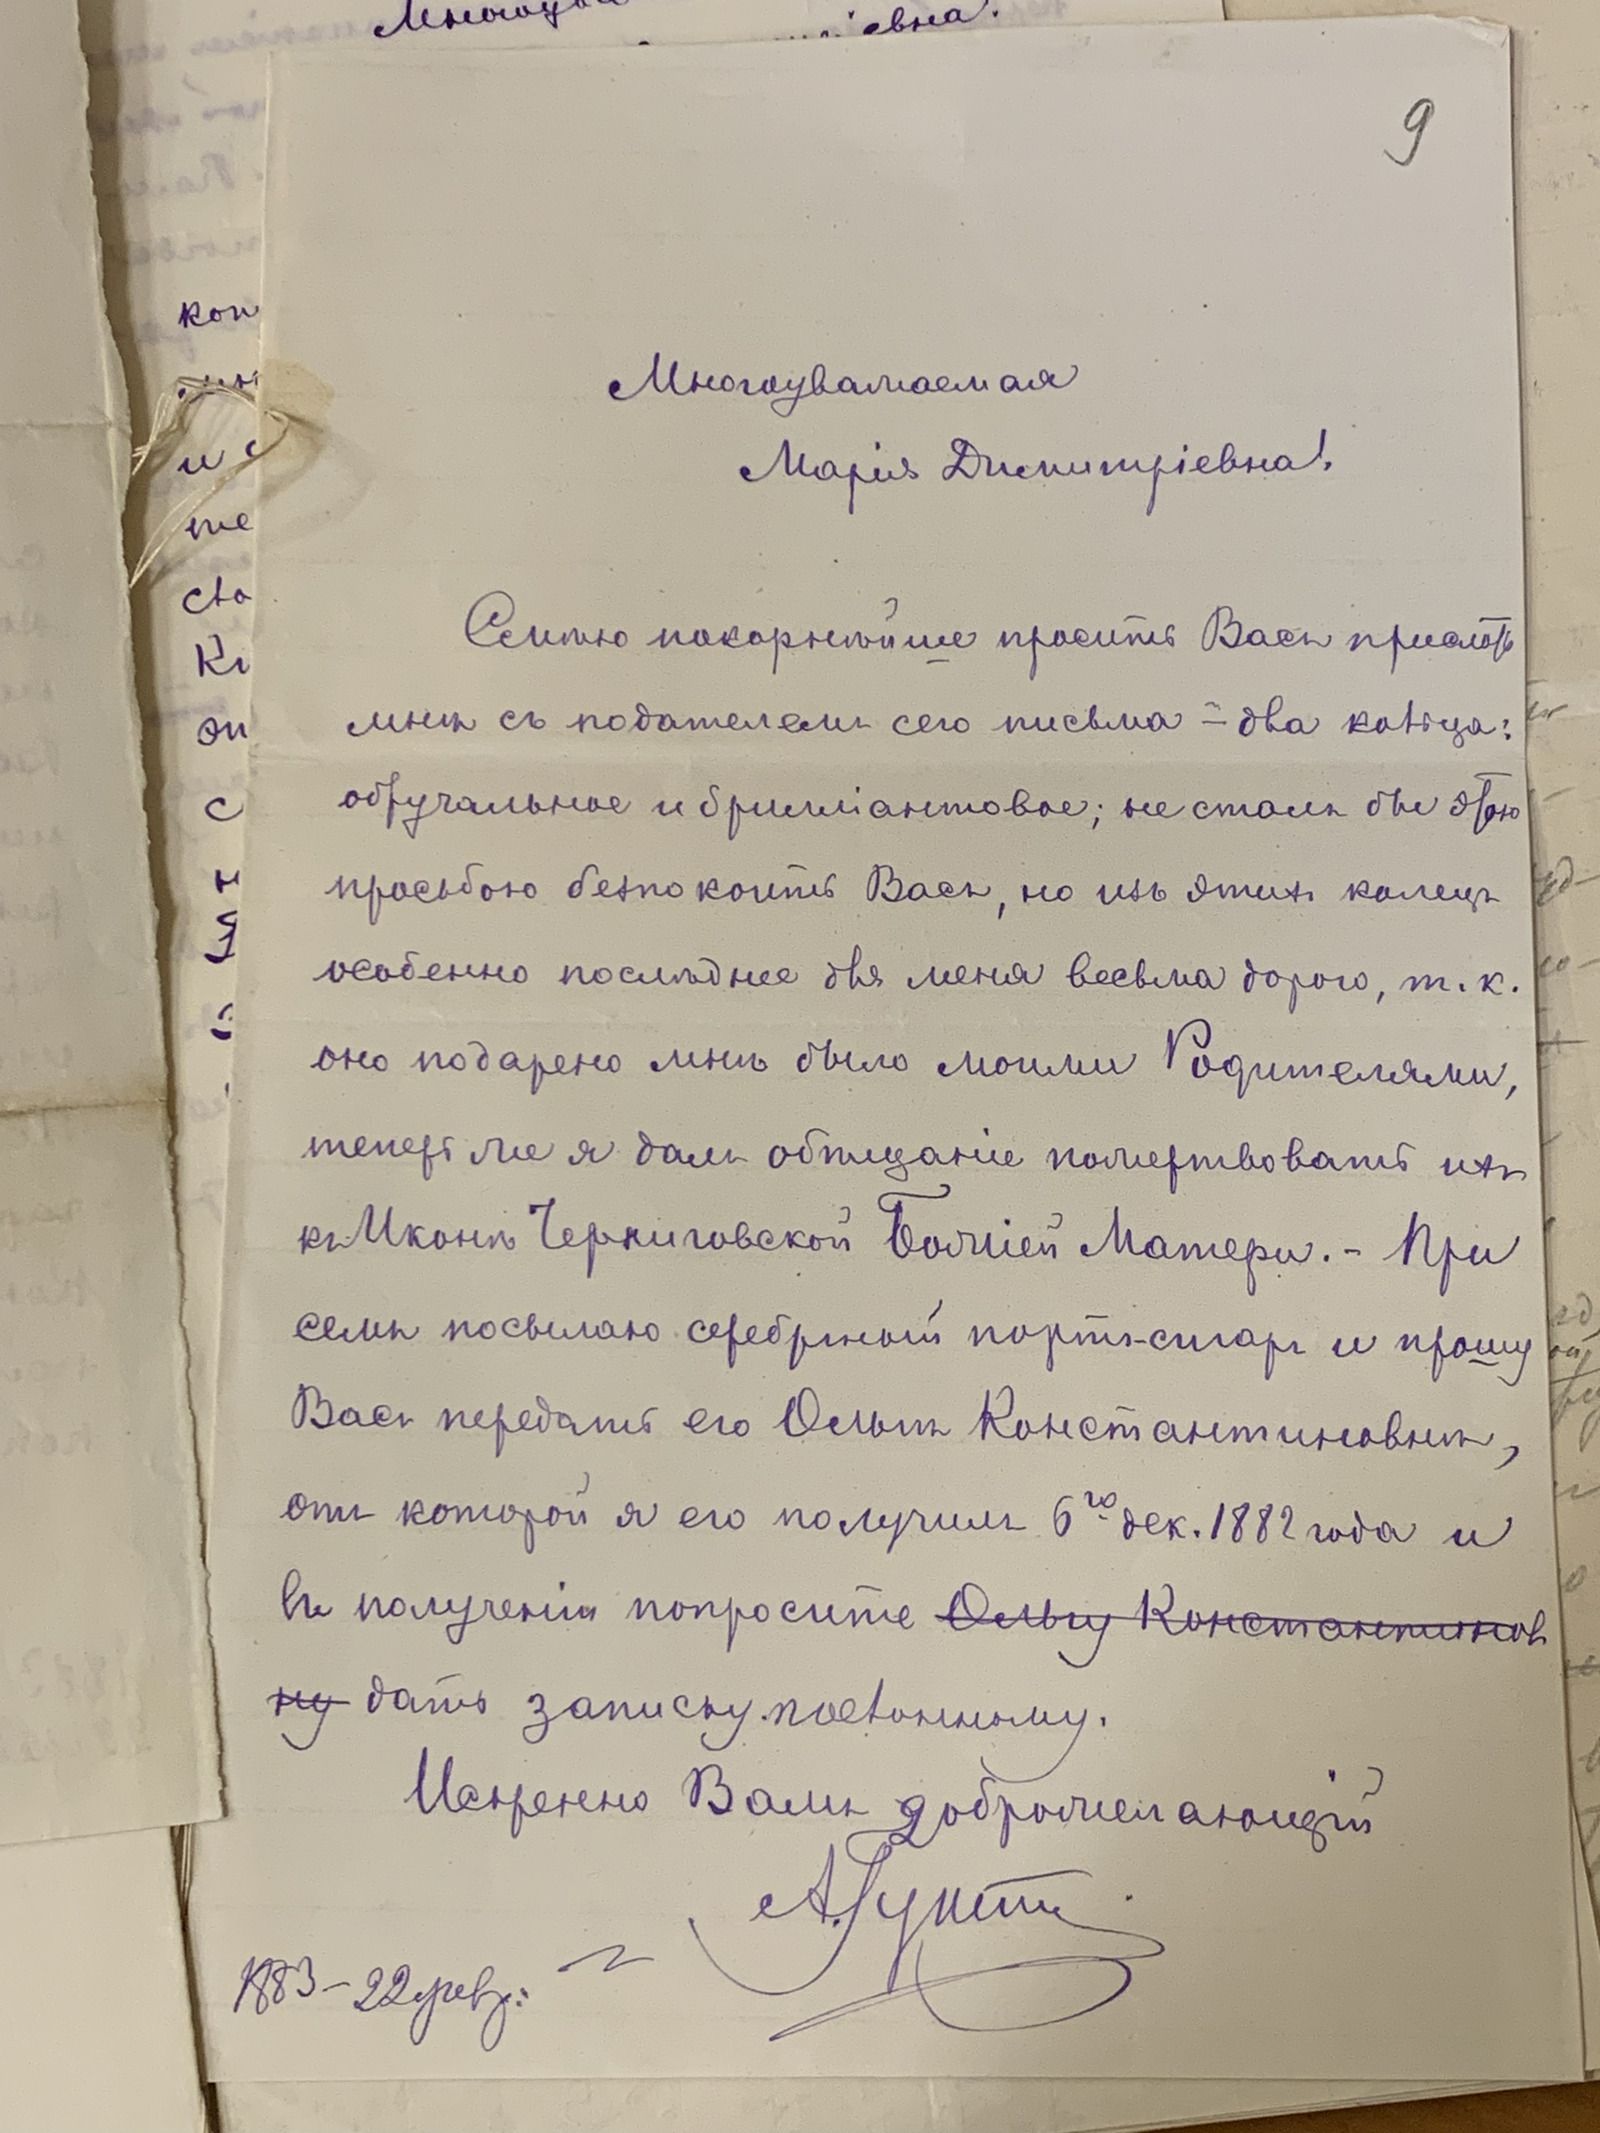 9
Многоуважаемая
Марія Димитріевна!
Смѣю покорнѣйше просить Васъ прислать
мнѣ съ подателемъ сего письма – два кольца:
обручальное и брилліантовое; не сталъ бы этою
просьбою безпокоить Васъ, но изъ этихъ колецъ
особенно послѣднее для меня весьма дорого, т. к.
оно подарено мнѣ было моими Родителями,
теперь же я далъ обѣщаніе пожертвовать ихъ
къ Иконѣ Черниговской Божіей Матери. – При
семъ посылаю серебряный портъ-сигаръ и прошу
Васъ передать его Ольгѣ Константиновнѣ,
отъ которой я его получилъ 6го дек. 1882 года и
въ полученіи попросите Ольгу Константинов
ну дать записку посланному.
Искренно Вамъ доброжелающій
1883 – 22 февр: